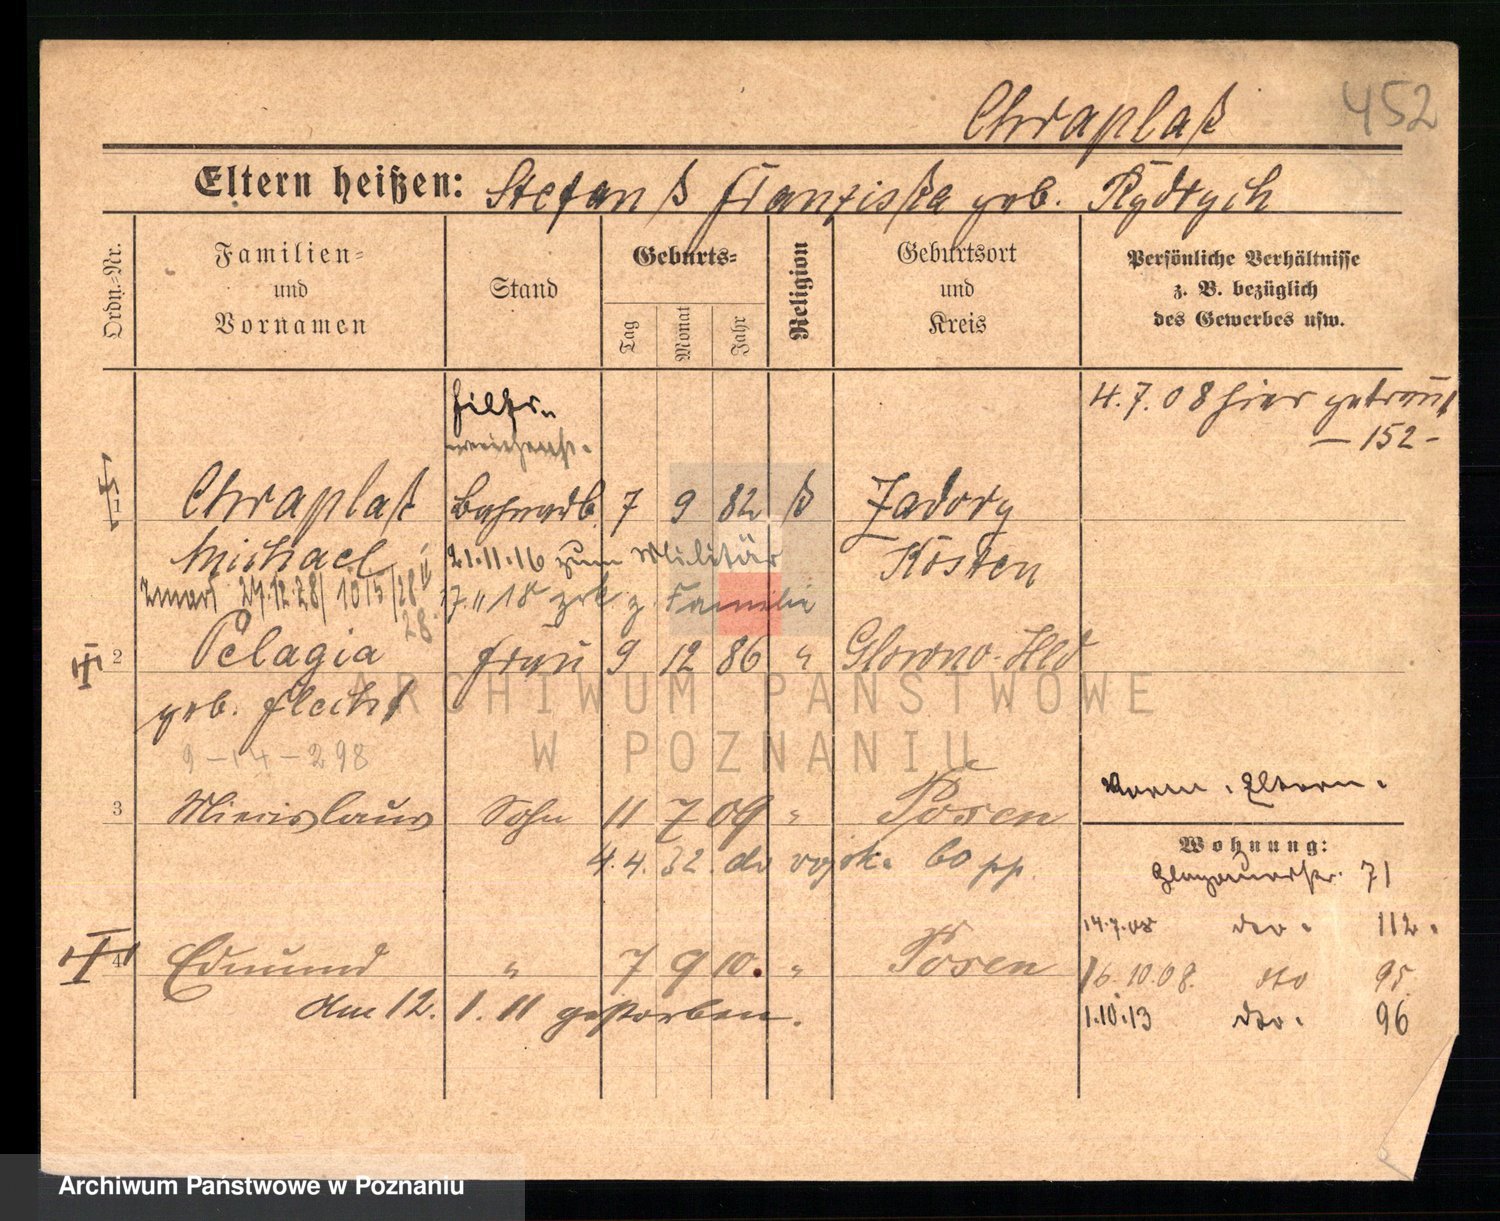 452
Chraplak
Eltern heißen: Stefan & Franziska geb. Rydrych
Ordn.-Nr.
Familien- und Vornamen
Stand
Geburts-
Tag
Monat
Jahr
Religion
Geburtsort und Kreis
Persönliche Verhältnisse z. B. bezüglich des Gewerbes usw.
4.7.08 hier getraut
- 152 -
Hilfs-
weichenst.
1 Chraplak Bahnarb. 7 9 82 k Zadory
Michael 21.11.16 zum Militär Kosten
zmarł 27.12.28 / 1015/28 II
17. 11 18 zrk z. Familie
28.
2 Pelagia Frau 9 12 86 " Glowno-Hld
geb. Flecht
9-14-298
3 Miecislaus Sohn 11 7 09 " Posen
4.4.32. do wojsk. 60 pp.
Vorm. Eltern.
Wohnung:
Glogauerstr. 71
14.7.08 dto. 112.
16.10.08. dto 95.
1.10.13 dto. 96
4 Edmund " 7 9 10. " Posen
Am 12. 1. 11 gestorben.
ARCHIWUM PAŃSTWOWE
W POZNANIU
Archiwum Państwowe w Poznaniu